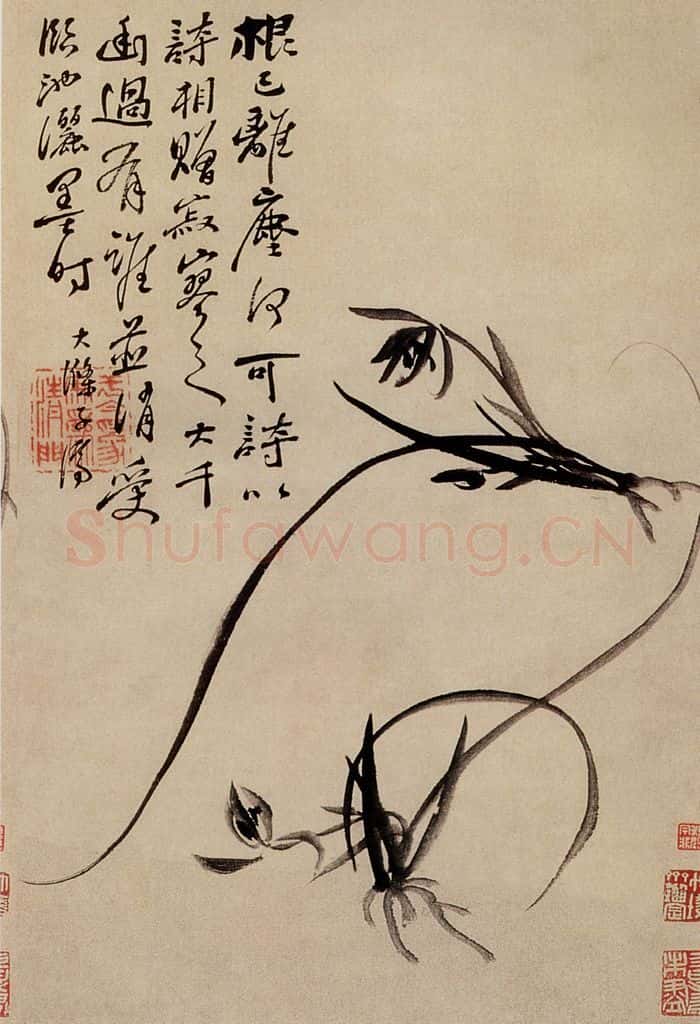 根已離塵何可詩以
詩相贈寂寥之大千
幽過有誰並消受
臨池灑墨時
大滌子濟
Shufawang.CN